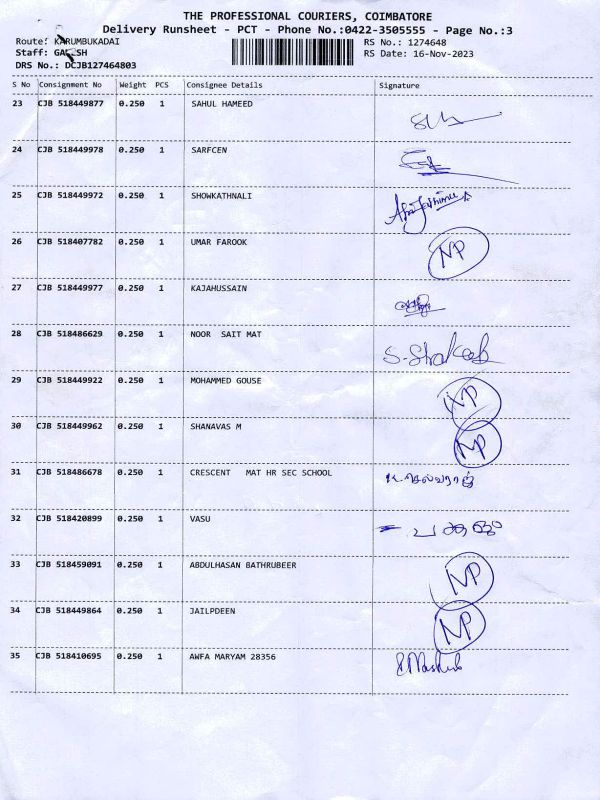 THE PROFESSIONAL COURIERS, COIMBATORE
Delivery Runsheet - PCT - Phone No.:0422-3505555 - Page No.:3
Route: KARUMBUKADAI RS No.: 1274648
Staff: GANESH RS Date: 16-Nov-2023
DRS No.: DCJB127464803
S No Consignment No Weight PCS Consignee Details Signature
23 CJB 518449877 0.250 1 SAHUL HAMEED
24 CJB 518449978 0.250 1 SARFCEN
25 CJB 518449972 0.250 1 SHOWKATHNALI
26 CJB 518407782 0.250 1 UMAR FAROOK NP
27 CJB 518449977 0.250 1 KAJAHUSSAIN
28 CJB 518486629 0.250 1 NOOR SAIT MAT S. Shakeeb
29 CJB 518449922 0.250 1 MOHAMMED GOUSE NP
30 CJB 518449962 0.250 1 SHANAVAS M NP
31 CJB 518486678 0.250 1 CRESCENT MAT HR SEC SCHOOL K. செல்வராஜ்
32 CJB 518420899 0.250 1 VASU
33 CJB 518459091 0.250 1 ABDULHASAN BATHRUBEER NP
34 CJB 518449864 0.250 1 JAILPDEEN NP
35 CJB 518410695 0.250 1 AWFA MARYAM 28356